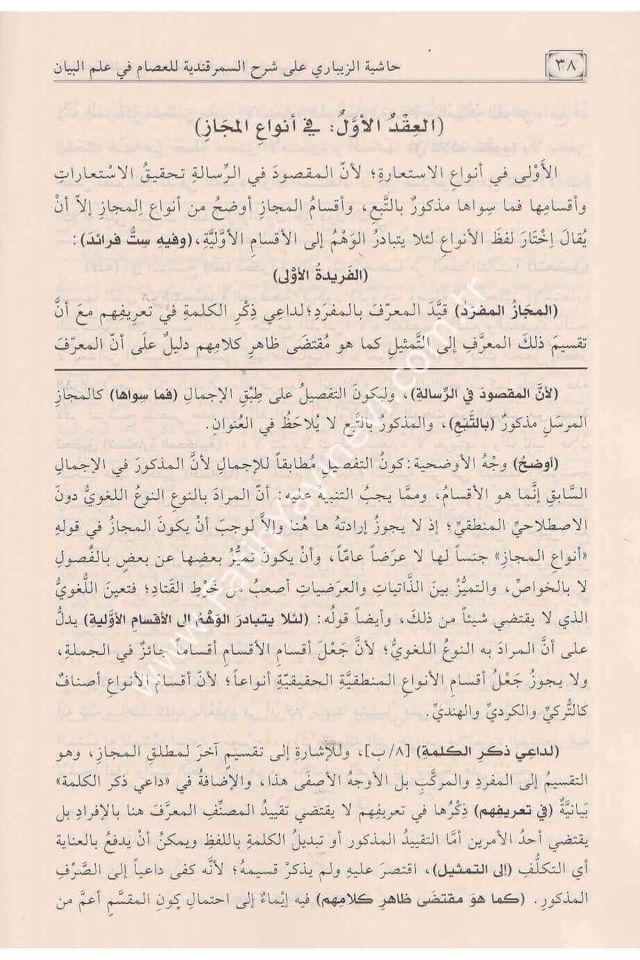 ٣٨
حاشية الزيباري على شرح السمرقندية للعصام في علم البيان
(العِقْدُ الأوَّلُ: في أنواع المجَاز)
الأَوْلى في أنواع الاستعارة؛ لأنّ المقصودَ في الرِّسالةِ تحقيقُ الاستعاراتِ
وأقسامِها فما سِواها مذكورٌ بالتَّبَعِ، وأقسامُ المجازِ أوضحُ من أنواعِ المجازِ إلاَّ أنْ
يُقالَ اخْتَارَ لفظَ الأنواعِ لئلا يتبادرُ الوَهْمُ إلى الأقسامِ الأوَّليَّةِ، (وفيهِ سِتُّ فرائدَ):
(الفَريدةُ الأوْلى)
(المجازُ المفرَدُ) قيَّدَ المعرّفَ بالمفرَدِ؛ لداعي ذِكْرِ الكلمةِ في تعريفِهم مع أنَّ
تقسيمَ ذلكَ المعرَّفِ إلى التَّمثيلِ كما هو مُقتضَى ظاهرِ كلامِهم دليلٌ على أنّ المعرَّفَ
(لأنَّ المقصودَ في الرِّسالةِ)، وليكونَ التفصيلُ على طِبْقِ الإجمالِ (فما سِواها) كالمجازِ
المرسَلِ مذكورٌ (بالتَّبَعِ)، والمذكورُ بالتَّبعِ لا يُلاحَظُ في العُنوان.
(أوضحُ) وجْهُ الأوضحية: كونُ التفصيلِ مُطابقاً للإجمالِ لأنَّ المذكورَ في الإجمالِ
السَّابقِ إنَّما هو الأقسامُ، وممَّا يجبُ التنبيهُ عليه: أنّ المرادَ بالنوعِ النوعُ اللغويُّ دونَ
الاصطلاحيِّ المنطقيِّ؛ إذ لا يجوزُ إرادتُهُ ها هُنا وإلاَّ لوجبَ أنْ يكونَ المجازُ في قولِهِ
«أنواعِ المجازِ» جنساً لها لا عرَضاً عامّاً، وأنْ يكونَ تميُّزُ بعضِها عن بعضٍ بالفُصولِ
لا بالخواصِّ، والتميُّزُ بينَ الذَّاتياتِ والعرَضياتِ أصعبُ من خَرْطِ القَتادِ؛ فتعينَ اللُّغويُّ
الذي لا يقتضي شيئاً من ذلكَ، وأيضاً قولُه: (لئلا يتبادرَ الوَهْمُ إلى الأقسامِ الأوَّليةِ) يدلُّ
على أنَّ المرادَ به النوعُ اللغويُّ؛ لأنَّ جَعْلَ أقسامِ الأقسامِ أقساماً جائزٌ في الجملةِ،
ولا يجوزُ جَعْلُ أقسامِ الأنواعِ المنطقيَّةِ الحقيقيَّةِ أنواعاً؛ لأنّ أقسامَ الأنواعِ أصنافٌ
كالتُّركيِّ والكرديِّ والهنديِّ.
(لداعي ذكرِ الكلمةِ) [٨/ب]، وللإشارةِ إلى تقسيمٍ آخرَ لمطلقِ المجازِ، وهو
التقسيمُ إلى المفردِ والمركَّبِ بلِ الأوجهُ الأصفَى هذا، والإضافةُ في «داعي ذكرِ الكلمة»
بَيانيَّةٌ (في تعريفِهم) ذِكْرُها في تعريفِهم لا يقتضي تقييدَ المصنِّفِ المعرَّفَ هنا بالإفرادِ بل
يقتضي أحدُ الأمرينِ أمَّا التقييدُ المذكورُ أو تبديلُ الكلمةِ باللفظِ ويمكنُ أنْ يدفعَ بالعنايةِ
أي التكلُّفِ (إلى التمثيلِ)، اقتصرَ عليهِ ولم يذكرْ قسيمَهُ؛ لأنَّه كفَى داعياً إلى الصَّرْفِ
المذكورِ. (كما هو مقتضَى ظاهرِ كلامِهم) فيه إيْماءٌ إلى احتمالِ كونِ المقسَّمِ أعمَّ من
www.fatihyayinevi.com.tr